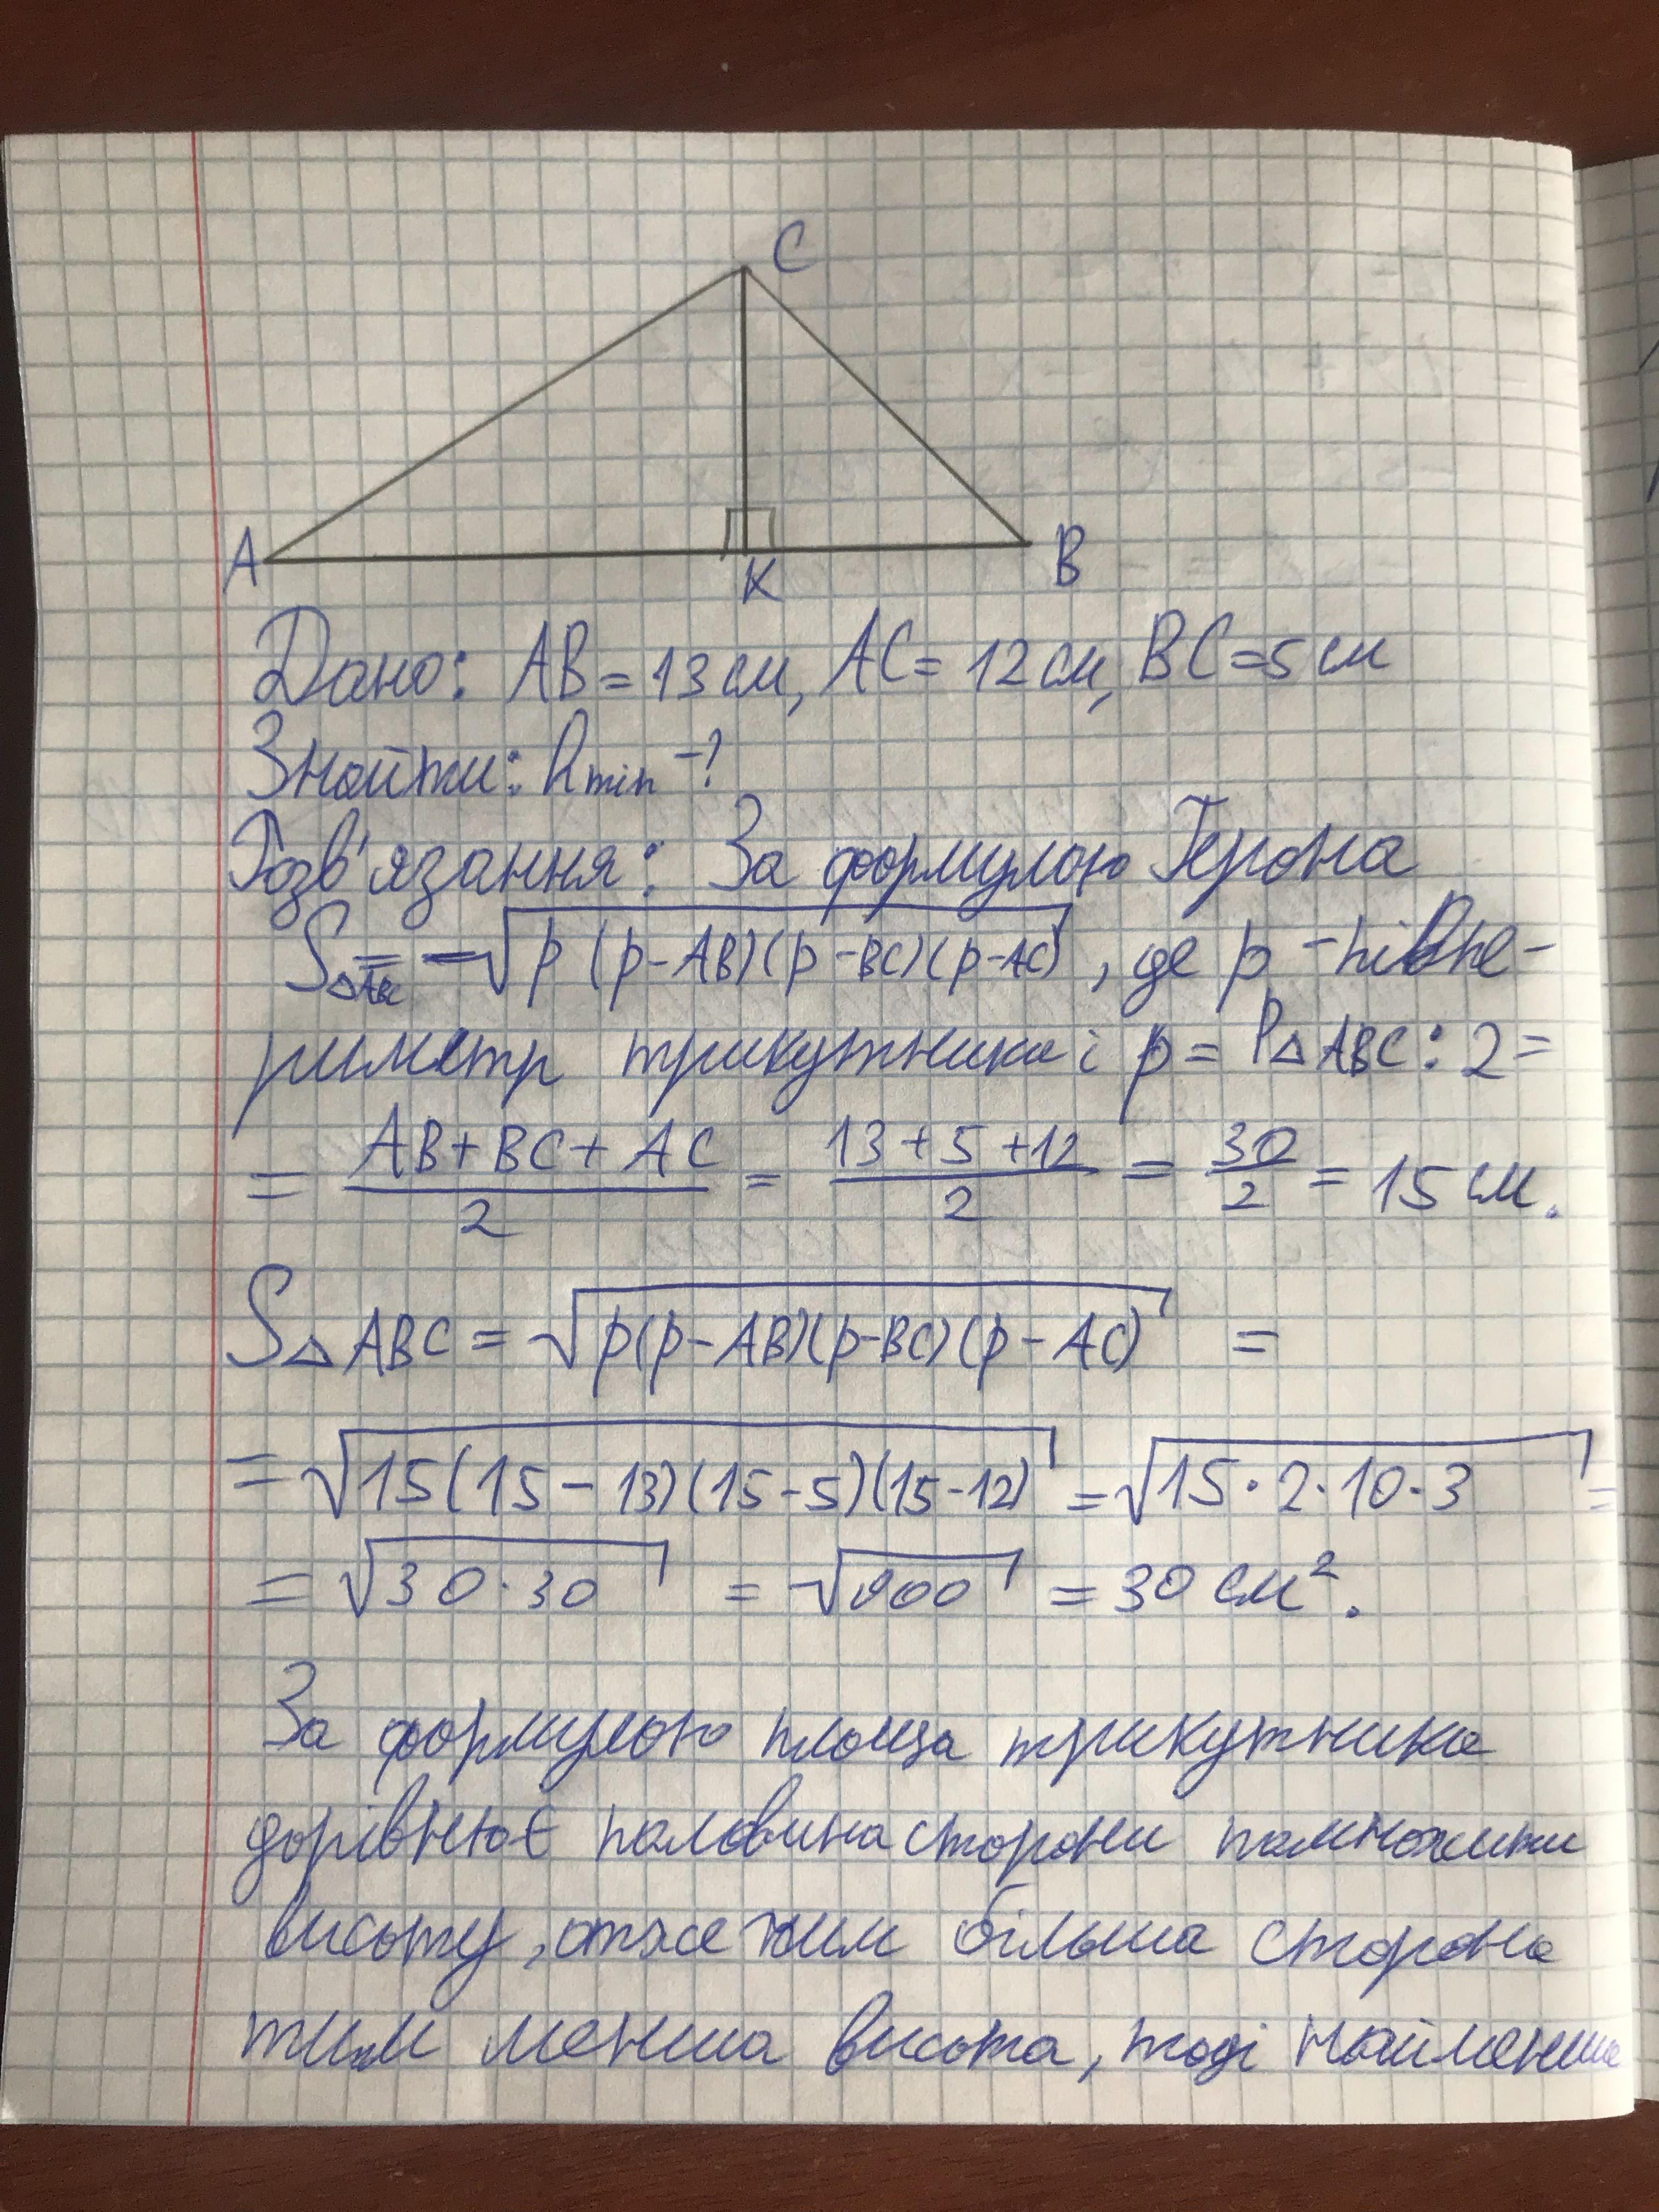 C
A
K
B
Дано: AB = 13 см, AC = 12 см, BC = 5 см
Знайти: hmin -?
Розв'язання: За формулою Герона
S△ABC = √p(p-AB)(p-BC)(p-AC), де p - півпе-
риметр трикутника і p = P△ABC : 2 =
= AB+BC+AC/2 = 13+5+12/2 = 30/2 = 15 см.
S△ABC = √p(p-AB)(p-BC)(p-AC) =
= √15(15-13)(15-5)(15-12) = √15·2·10·3 =
= √30·30 = √900 = 30 см².
За формулою площа трикутника
дорівнює половина сторони помножити
висоту, отже чим більша сторона
тим менша висота, тоді найменша